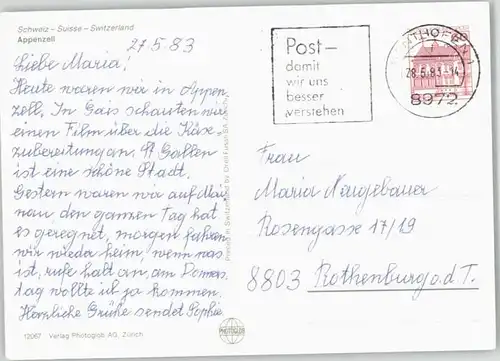 Schweiz - Suisse - Switzerland
Appenzell
27.5.83
Liebe Maria!
Heute waren wir in Appen-
zell, In Gais schauten wir
einen Film über die Käse-
zubereitung an. St Gallen
ist eine schöne Stadt.
Gestern waren wir auf Mai-
nau den ganzen Tag hat
es geregnet, morgen fahren
wir wieder heim, wenn was
ist, rufe halt an, am Donners-
tag wollte ich ja kommen.
Herzliche Grüße sendet Sophie
12067 Verlag Photoglob AG, Zürich
Printed in Switzerland by Orell Füssli SA Zürich
PHOTOGLOB
Post-
damit
wir uns
besser
verstehen
28.5.83-14
8972
Frau
Maria Naugebauer
Rosengasse 17/19
8803 Rothenburg o.d.T.